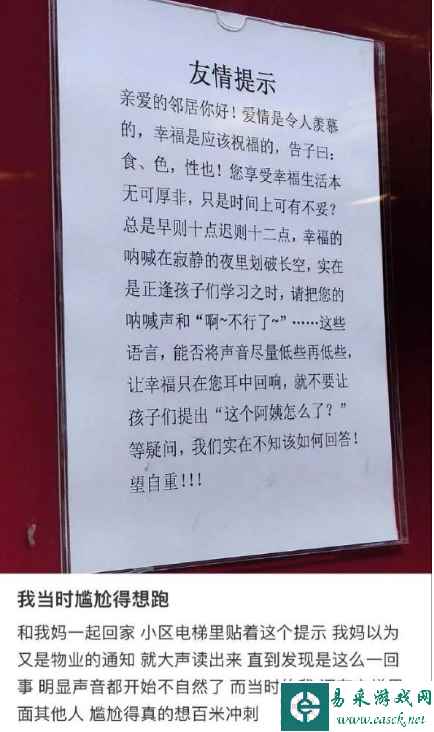 友情提示
亲爱的邻居你好！爱情是令人羡慕
的，幸福是应该祝福的，告子曰：
食、色，性也！您享受幸福生活本
无可厚非，只是时间上可有不妥？
总是早则十点迟则十二点，幸福的
呐喊在寂静的夜里划破长空，实在
是正逢孩子们学习之时，请把您的
呐喊声和“啊~不行了~”……这些
语言，能否将声音尽量低些再低些，
让幸福只在您耳中回响，就不要让
孩子们提出“这个阿姨怎么了？”
等疑问，我们实在不知该如何回答！
望自重！！！
我当时尴尬得想跑
和我妈一起回家 小区电梯里贴着这个提示 我妈以为
又是物业的通知 就大声读出来 直到发现是这么一回
事 明显声音都开始不自然了 而当时
面其他人 尴尬得真的想百米冲刺
易采游戏网
www.easck.net